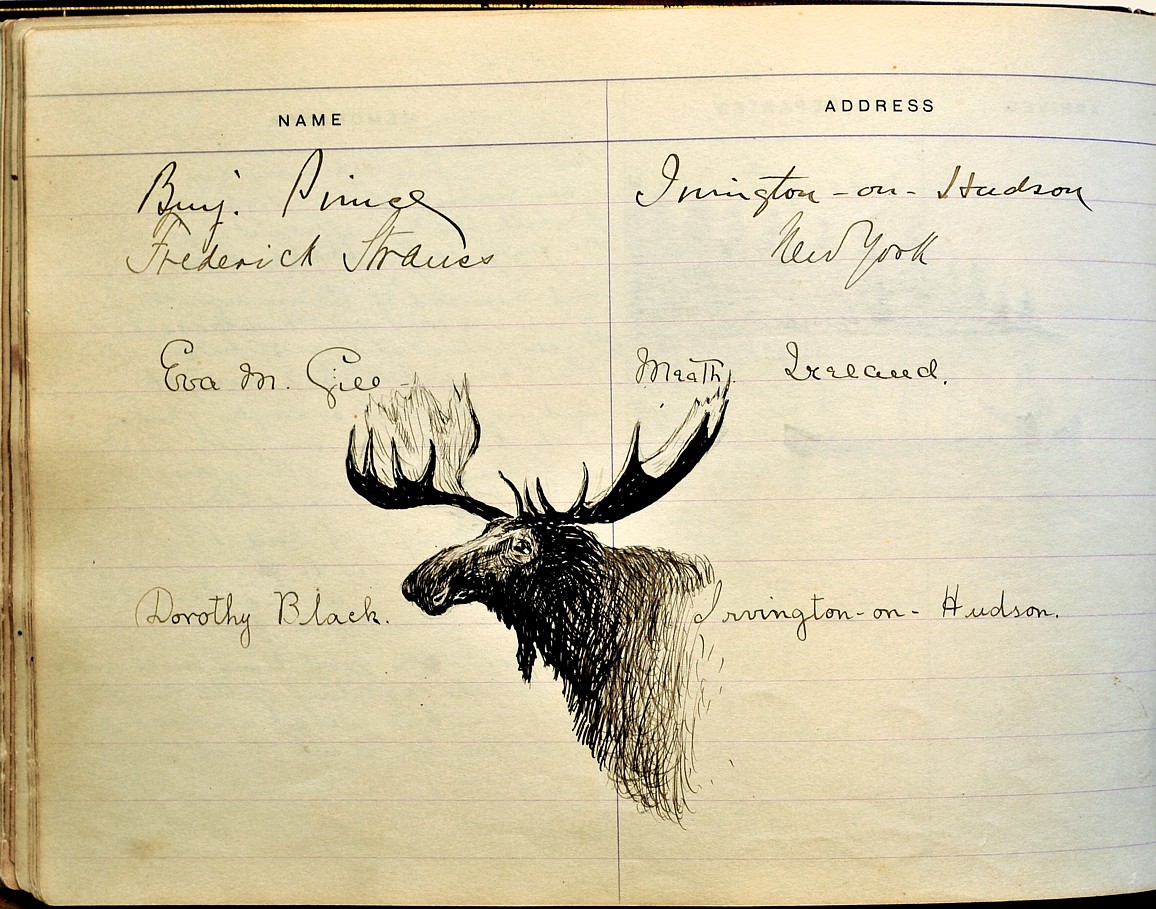 NAME ADDRESS
Benj. Prince Irvington-on-Hudson
Frederick Strauss New York
Eva M. Gill Meath. Ireland.
Dorothy Black. Irvington-on-Hudson.